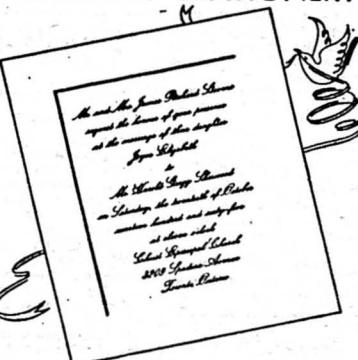 Mr. and Mrs. James Richard
request the honor of your presence
at the marriage of their daughter
Joyce Elizabeth
to
Mr. Harold Gregg
on Saturday, the twentieth of October
nineteen hundred and sixty-five
at eleven o'clock
Episcopal Church
Avenue
Toronto, Ontario